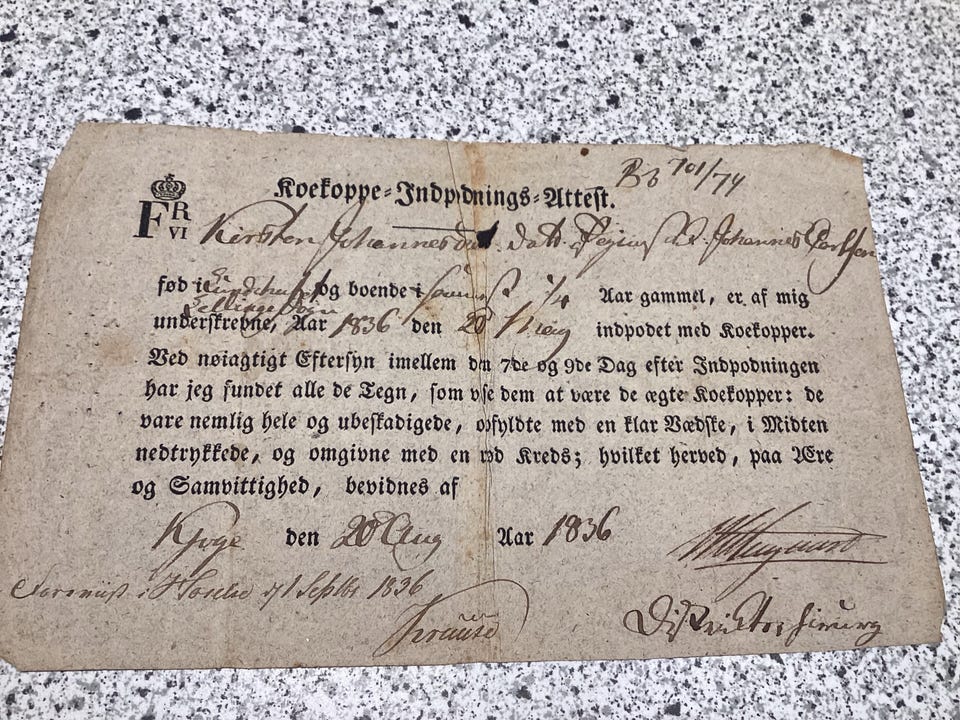 Bb 701/74
Koekoppe-Indpodnings-Attest.
F R VI
Kirsten Johannesdatt. Johannes Carlsen
fød i og boende i 1/4 Aar gammel, er af mig
underskrevne, Aar 1836 den 20 indpodet med Koekopper.
Ved nøiagtigt Eftersyn imellem den 7de og 9de Dag efter Indpodningen
har jeg fundet alle de Tegn, som vise dem at være de ægte Koekopper: de
vare nemlig hele og ubeskadigede, opfyldte med en klar Vædske, i Midten
nedtrykkede, og omgivne med en rød Kreds; hvilket herved, paa Ære
og Samvittighed, bevidnes af
Kjøge den 28 Aug Aar 1836
1 Septbr 1836
Krause
Districtschirurg